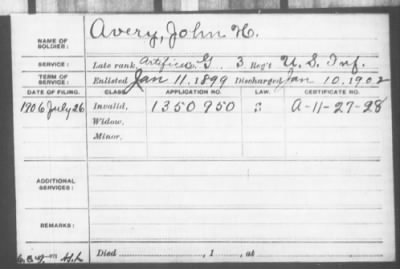 NAME OF SOLDIER: Avery, John H.
SERVICE: Late rank, Artificer G. 3 Reg't U.S. Inf.
TERM OF SERVICE: Enlisted Jan 11. 1899 Discharged Jan 10. 1902
DATE OF FILING. CLASS. APPLICATION NO. LAW. CERTIFICATE NO.
1906 July 26 Invalid, 1350950 A-11-27-28
Widow,
Minor,
ADDITIONAL SERVICES:
REMARKS:
Died , 1 , at